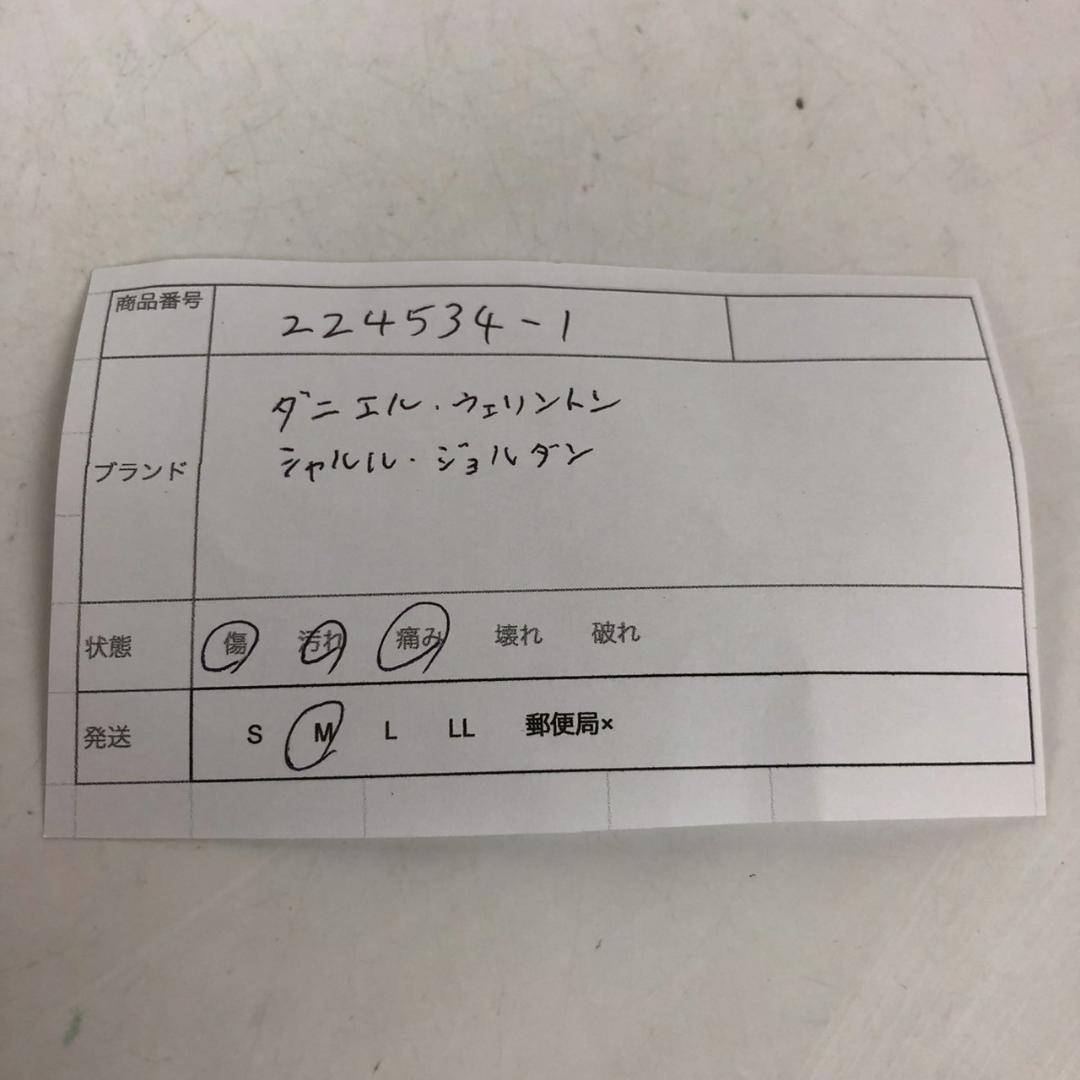 商品番号 224534-1
ブランド ダニエル・ウェリントン
シャルル・ジョルダン
状態 傷 汚れ 痛み 壊れ 破れ
発送 S M L LL 郵便局×